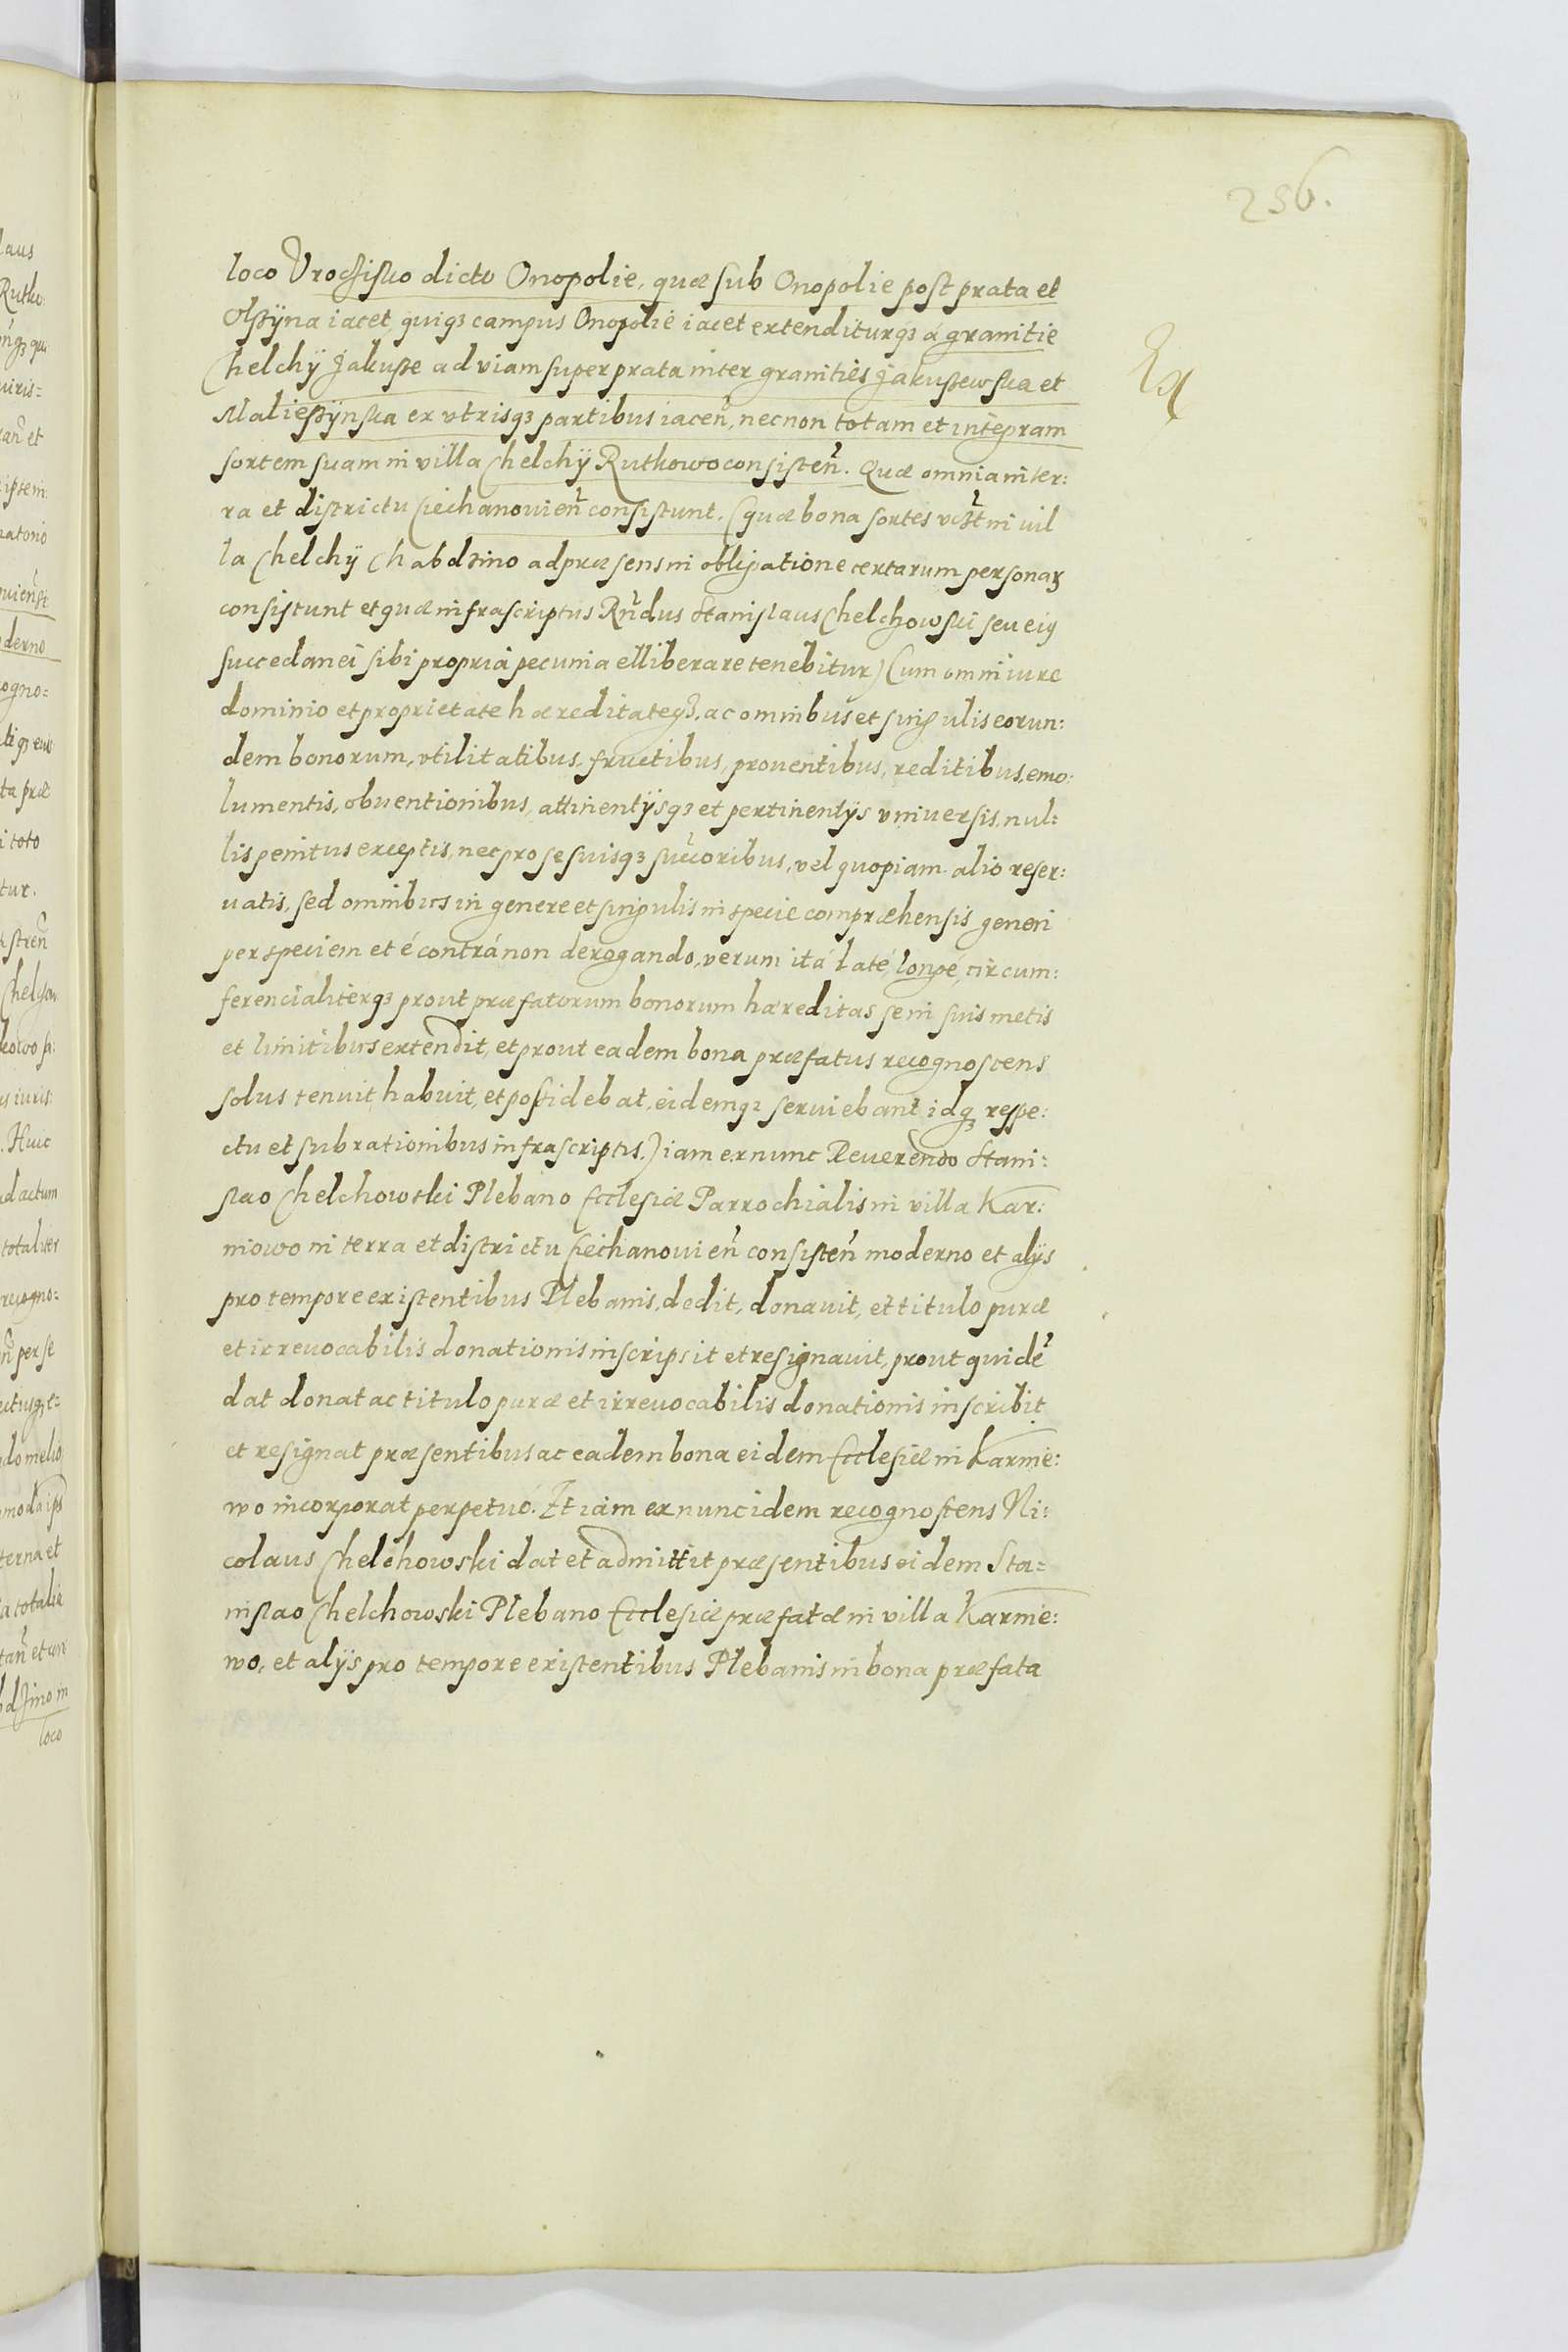 256.
loco Vroczisko dicto Onopolie, quæ sub Onopolie post prata et
Olßÿna iacet, quiqȝ campus Onopolie iacet extenditurqȝ á granitie
Chelchÿ Jakuße ad viam super prata inter granities Jakußewska et
Malieβÿnska ex vtrisqȝ partibus iaceñ, necnon totam et integram
sortem suam in villa Chelchÿ Rutkowo consisteñ. Quæ omnia in ter:
ra et districtu Ciechanouieñ consistunt. (quæ bona sortes vcꝫt in vil
la Chelchÿ Chabdzino ad præsens in obligatione certarum personaꝝ
consistunt et quæ infrascriptus Rñdus Stanislaus Chelchowski seu eiꝰ
succedanei sibi propriá pecunia elliberare tenebitur) Cum omni iure
dominio et proprietate hæreditateqȝ, ac omnibus et singulis eorun:
dem bonorum, vtilitatibus, fructibus, prouentibus, reditibus, emo:
lumentis, obuentionibus, attinentÿsqȝ et pertinentÿs vniuersis, nul:
lis penitus exceptis, nec pro se suisqȝ succoribus, vel quopiam alio reser:
uatis, sed omnibus in genere et singulis in specie compræhensis generi
per speciem et é contrá non derogando, verum itá laté, longé, circum:
ferencialiterqȝ prout præfatorum bonorum hæreditas se in suis metis
et limitibus extendit, et prout eadem bona præfatus recognoscens
solus tenuit, habuit, et possidebat, eidemqȝ seruiebant idqȝ respe:
ctu et sub rationibus infrascriptis.) iam ex nunc Reuerendo Stani:
slao Chelchowski Plebano Ecclesiæ Parrochialis in villa Kar:
niowo in terra et districtu Ciechanouieñ consisteñ moderno et alÿs
pro tempore existentibus Plebanis, dedit, donauit, et titulo puræ
et irreuocabilis donationis inscripsit et resignauit, prout quidẽ
dat donat ac titulo puræ et irreuocabilis donationis inscribit
et resignat præsentibus ac eadem bona eidem Ecclesiæ in Karnie:
wo incorporat perpetuó. Et iam ex nunc idem recognoscens Ni:
colaus Chelchowski dat et admittit præsentibus eidem Sta=
nislao Chelchowski Plebano Ecclesiæ præfatæ in villa Karnie:
wo, et alÿs pro tempore existentibus Plebanis in bona præfata